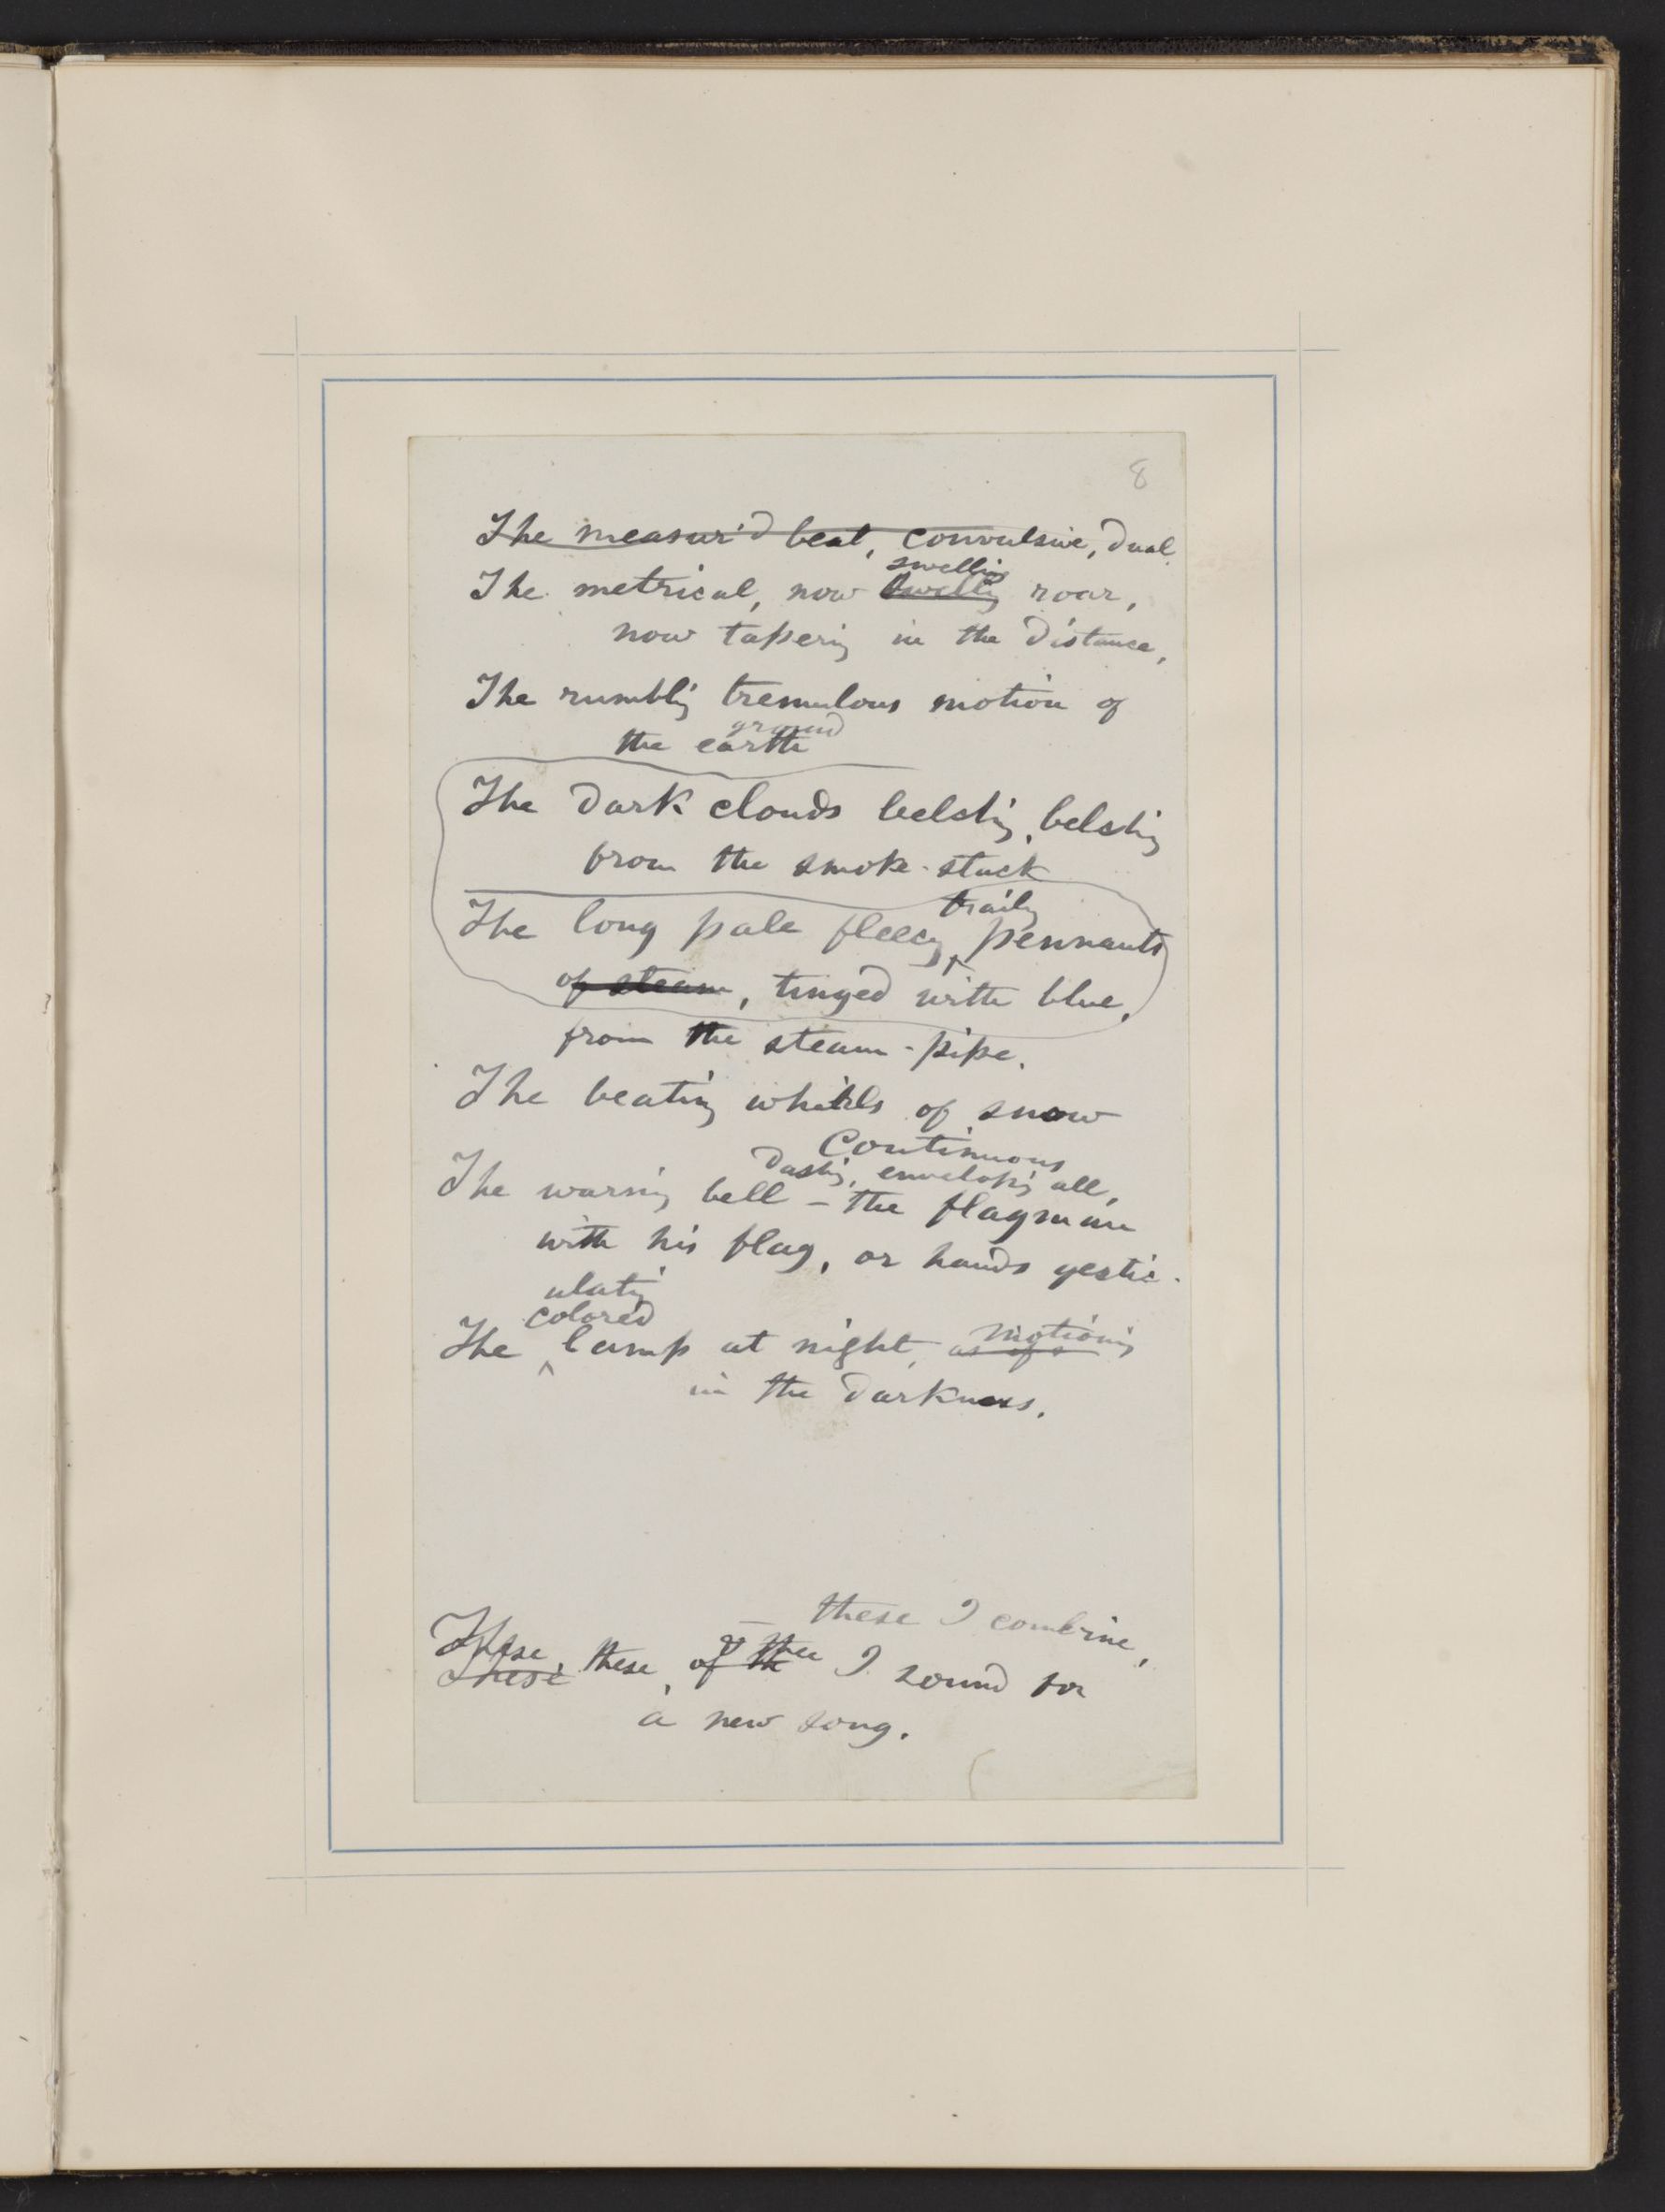 8
The measur'd beat, convulsive, dual
swelling
The metrical, now swelling roar,
now tapering in the distance,
The rumbling tremulous motion of
ground
the earth
The dark clouds belching, belching
from the smoke-stack
trailing
The long pale fleecy pennants
of steam, tinged with blue,
from the steam-pipe.
The beating whirls of snow
Continuous
dashing, enveloping all,
The warning bell – the flagman
with his flag, or hands gestic-
ulating
colored
The ^ lamp at night, motioning
in the darkness.
— these I combine,
These, these, of thee I sound for
These of th
a new song.